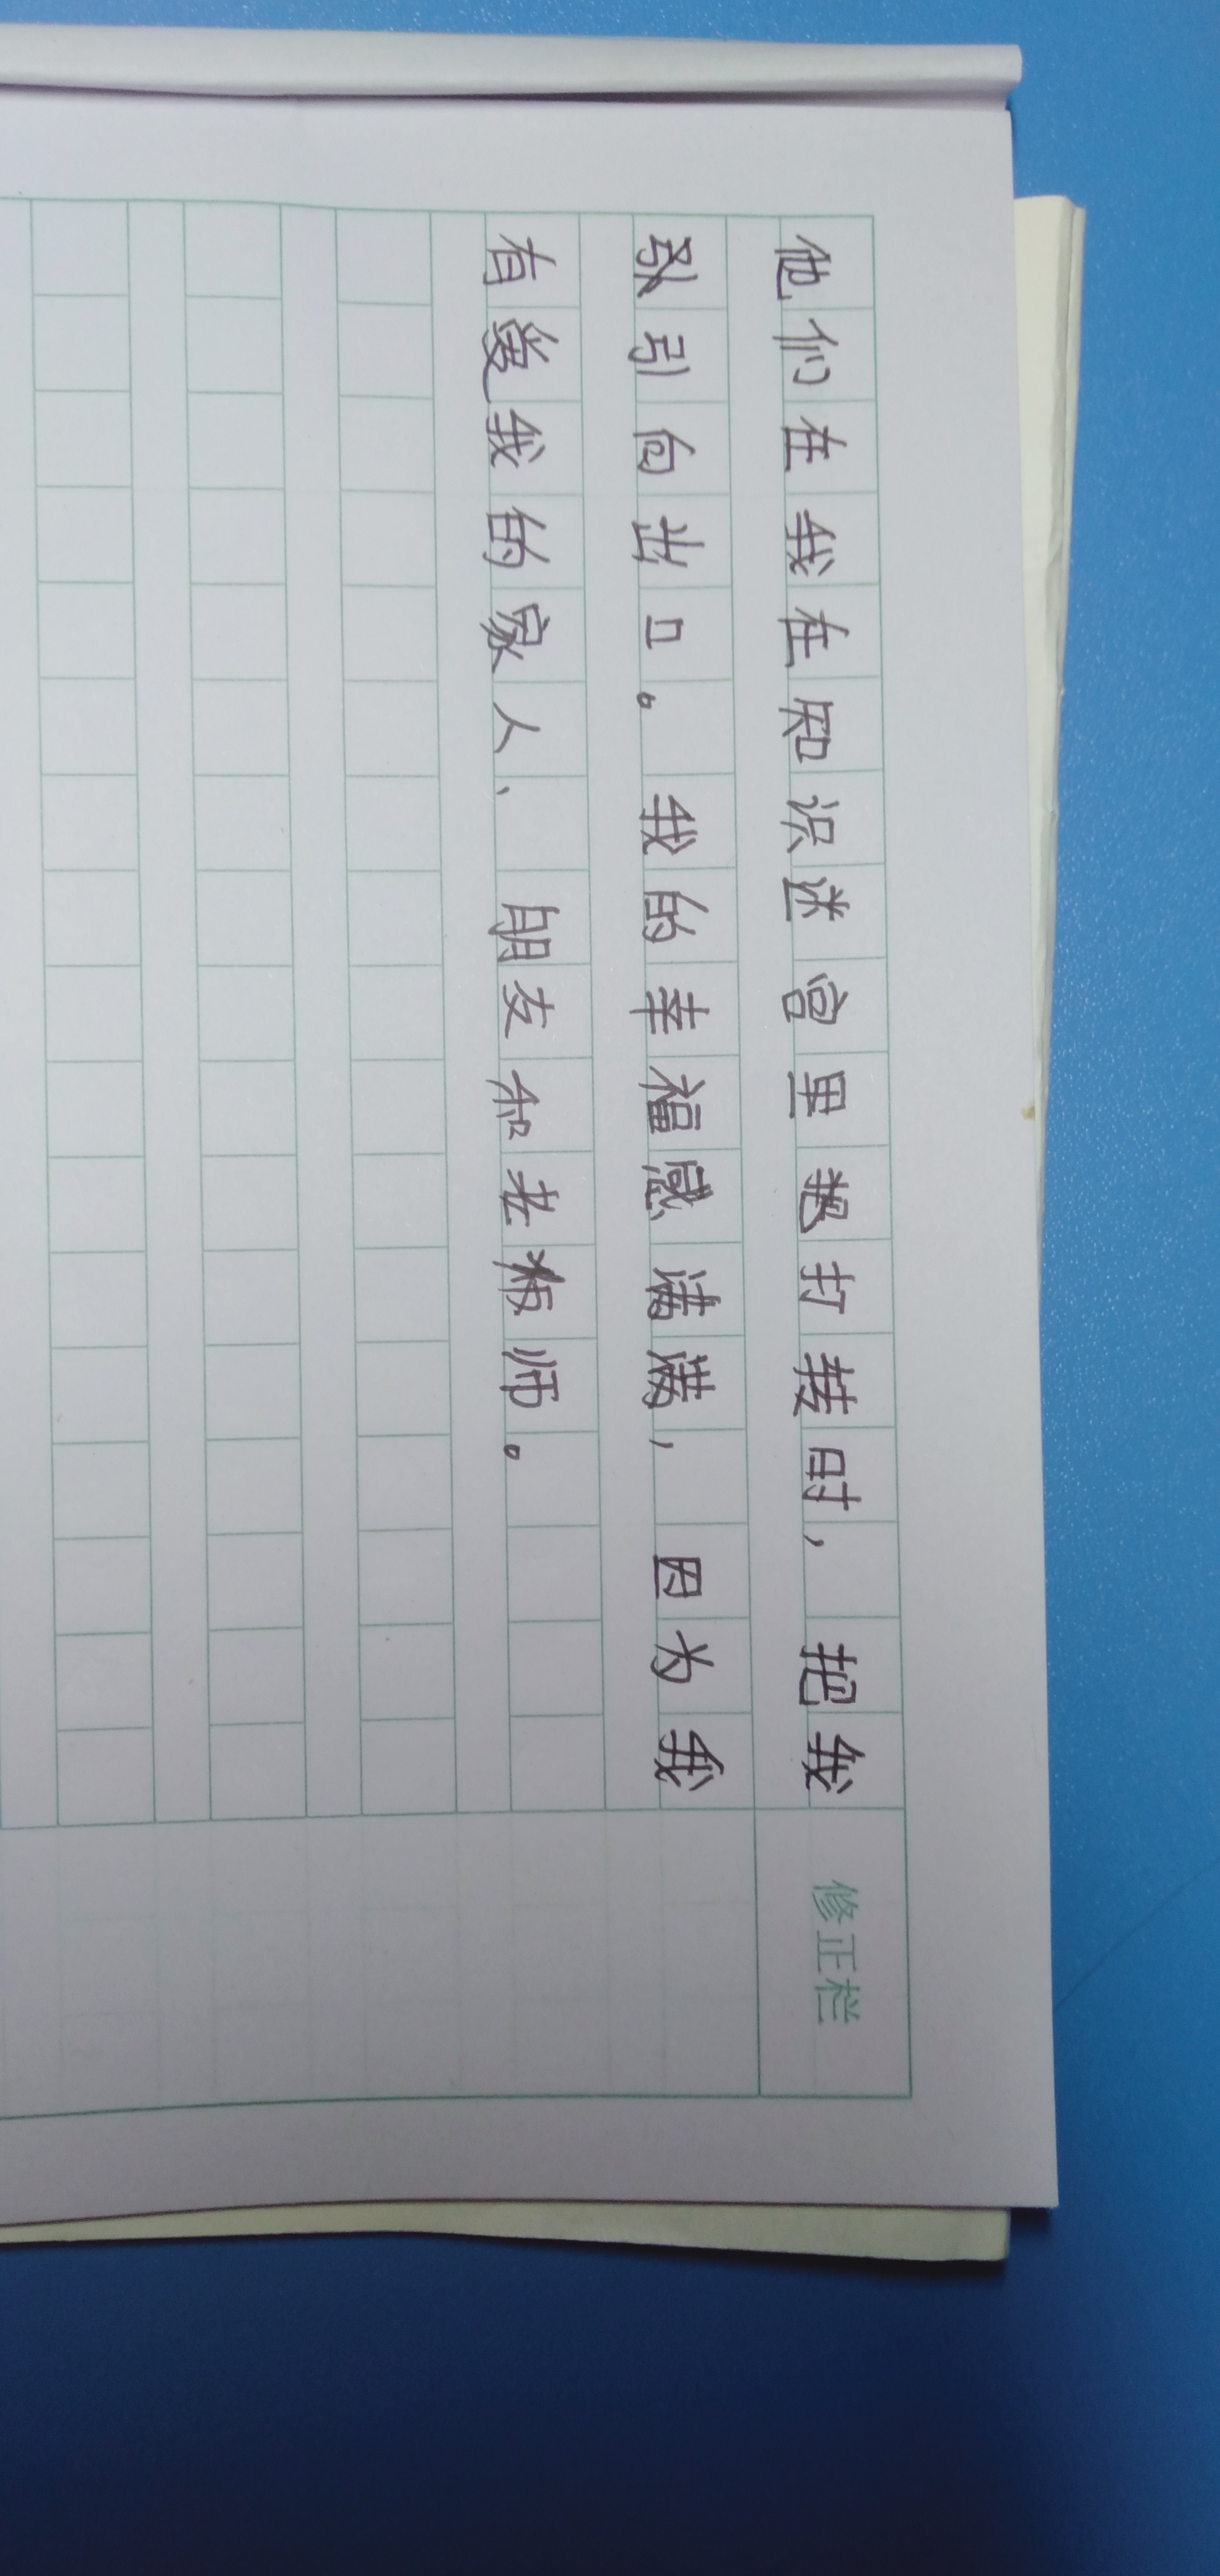 他们在我在知识迷宫里打转时，把我
引向出口。我的幸福感满满，因为我
有爱我的家人、朋友和老师。
修正栏